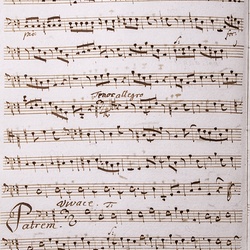 pia: for:
Tenor allegro
Vivace. T:
Patrem.